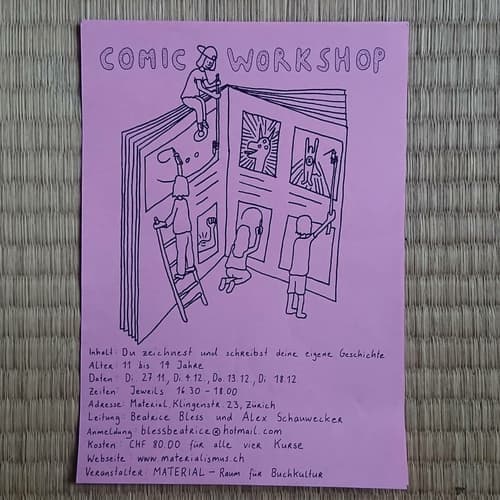 COMIC WORKSHOP
Inhalt: Du zeichnest und schreibst deine eigene Geschichte
Alter: 11 bis 14 Jahre
Daten: Di. 27.11., Di. 4.12., Do. 13.12., Di. 18.12.
Zeiten: Jeweils 16.30 - 18.00
Adresse: Material, Klingenstr. 23, Zürich
Leitung: Beatrice Bless und Alex Schauwecker
Anmeldung: blessbeatrice@hotmail.com
Kosten: CHF 80.00 für alle vier Kurse
Webseite: www.materialismus.ch
Veranstalter: MATERIAL - Raum für Buchkultur